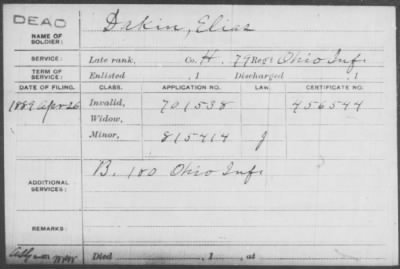 DEAD
NAME OF SOLDIER: Dekin, Elias
SERVICE: Late rank, Co. H. 79 Reg't Ohio Inf.
TERM OF SERVICE: Enlisted , 1 Discharged , 1
DATE OF FILING. CLASS. APPLICATION NO. LAW. CERTIFICATE NO.
1889 Apr 26 Invalid, 701538 456544
Widow,
Minor, 815414 g
ADDITIONAL SERVICES: B. 100 Ohio Inf.
REMARKS:
Died , 1 , at